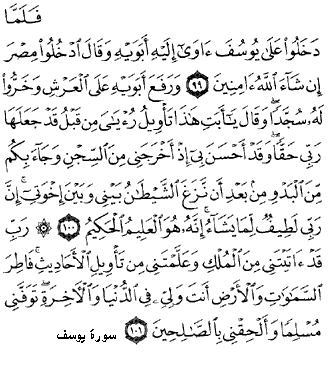 فَلَمَّا
دَخَلُوا۟ عَلَىٰ يُوسُفَ ءَاوَىٰٓ إِلَيْهِ أَبَوَيْهِ وَقَالَ ٱدْخُلُوا۟ مِصْرَ
إِن شَآءَ ٱللَّهُ ءَامِنِينَ ٩٩ وَرَفَعَ أَبَوَيْهِ عَلَى ٱلْعَرْشِ وَخَرُّوا۟
لَهُۥ سُجَّدًا ۖ وَقَالَ يَٰٓأَبَتِ هَٰذَا تَأْوِيلُ رُءْيَٰىَ مِن قَبْلُ قَدْ جَعَلَهَا
رَبِّى حَقًّا ۖ وَقَدْ أَحْسَنَ بِىٓ إِذْ أَخْرَجَنِى مِنَ ٱلسِّجْنِ وَجَآءَ بِكُم
مِّنَ ٱلْبَدْوِ مِنۢ بَعْدِ أَن نَّزَغَ ٱلشَّيْطَٰنُ بَيْنِى وَبَيْنَ إِخْوَتِىٓ ۚ إِنَّ
رَبِّى لَطِيفٌ لِّمَا يَشَآءُ ۚ إِنَّهُۥ هُوَ ٱلْعَلِيمُ ٱلْحَكِيمُ ١٠٠ ۞ رَبِّ
قَدْ ءَاتَيْتَنِى مِنَ ٱلْمُلْكِ وَعَلَّمْتَنِى مِن تَأْوِيلِ ٱلْأَحَادِيثِ ۚ فَاطِرَ
ٱلسَّمَٰوَٰتِ وَٱلْأَرْضِ أَنتَ وَلِىِّۦ فِى ٱلدُّنْيَا وَٱلْءَاخِرَةِ ۖ تَوَفَّنِى
مُسْلِمًا وَأَلْحِقْنِى بِٱلصَّٰلِحِينَ ١٠١ سورة يوسف